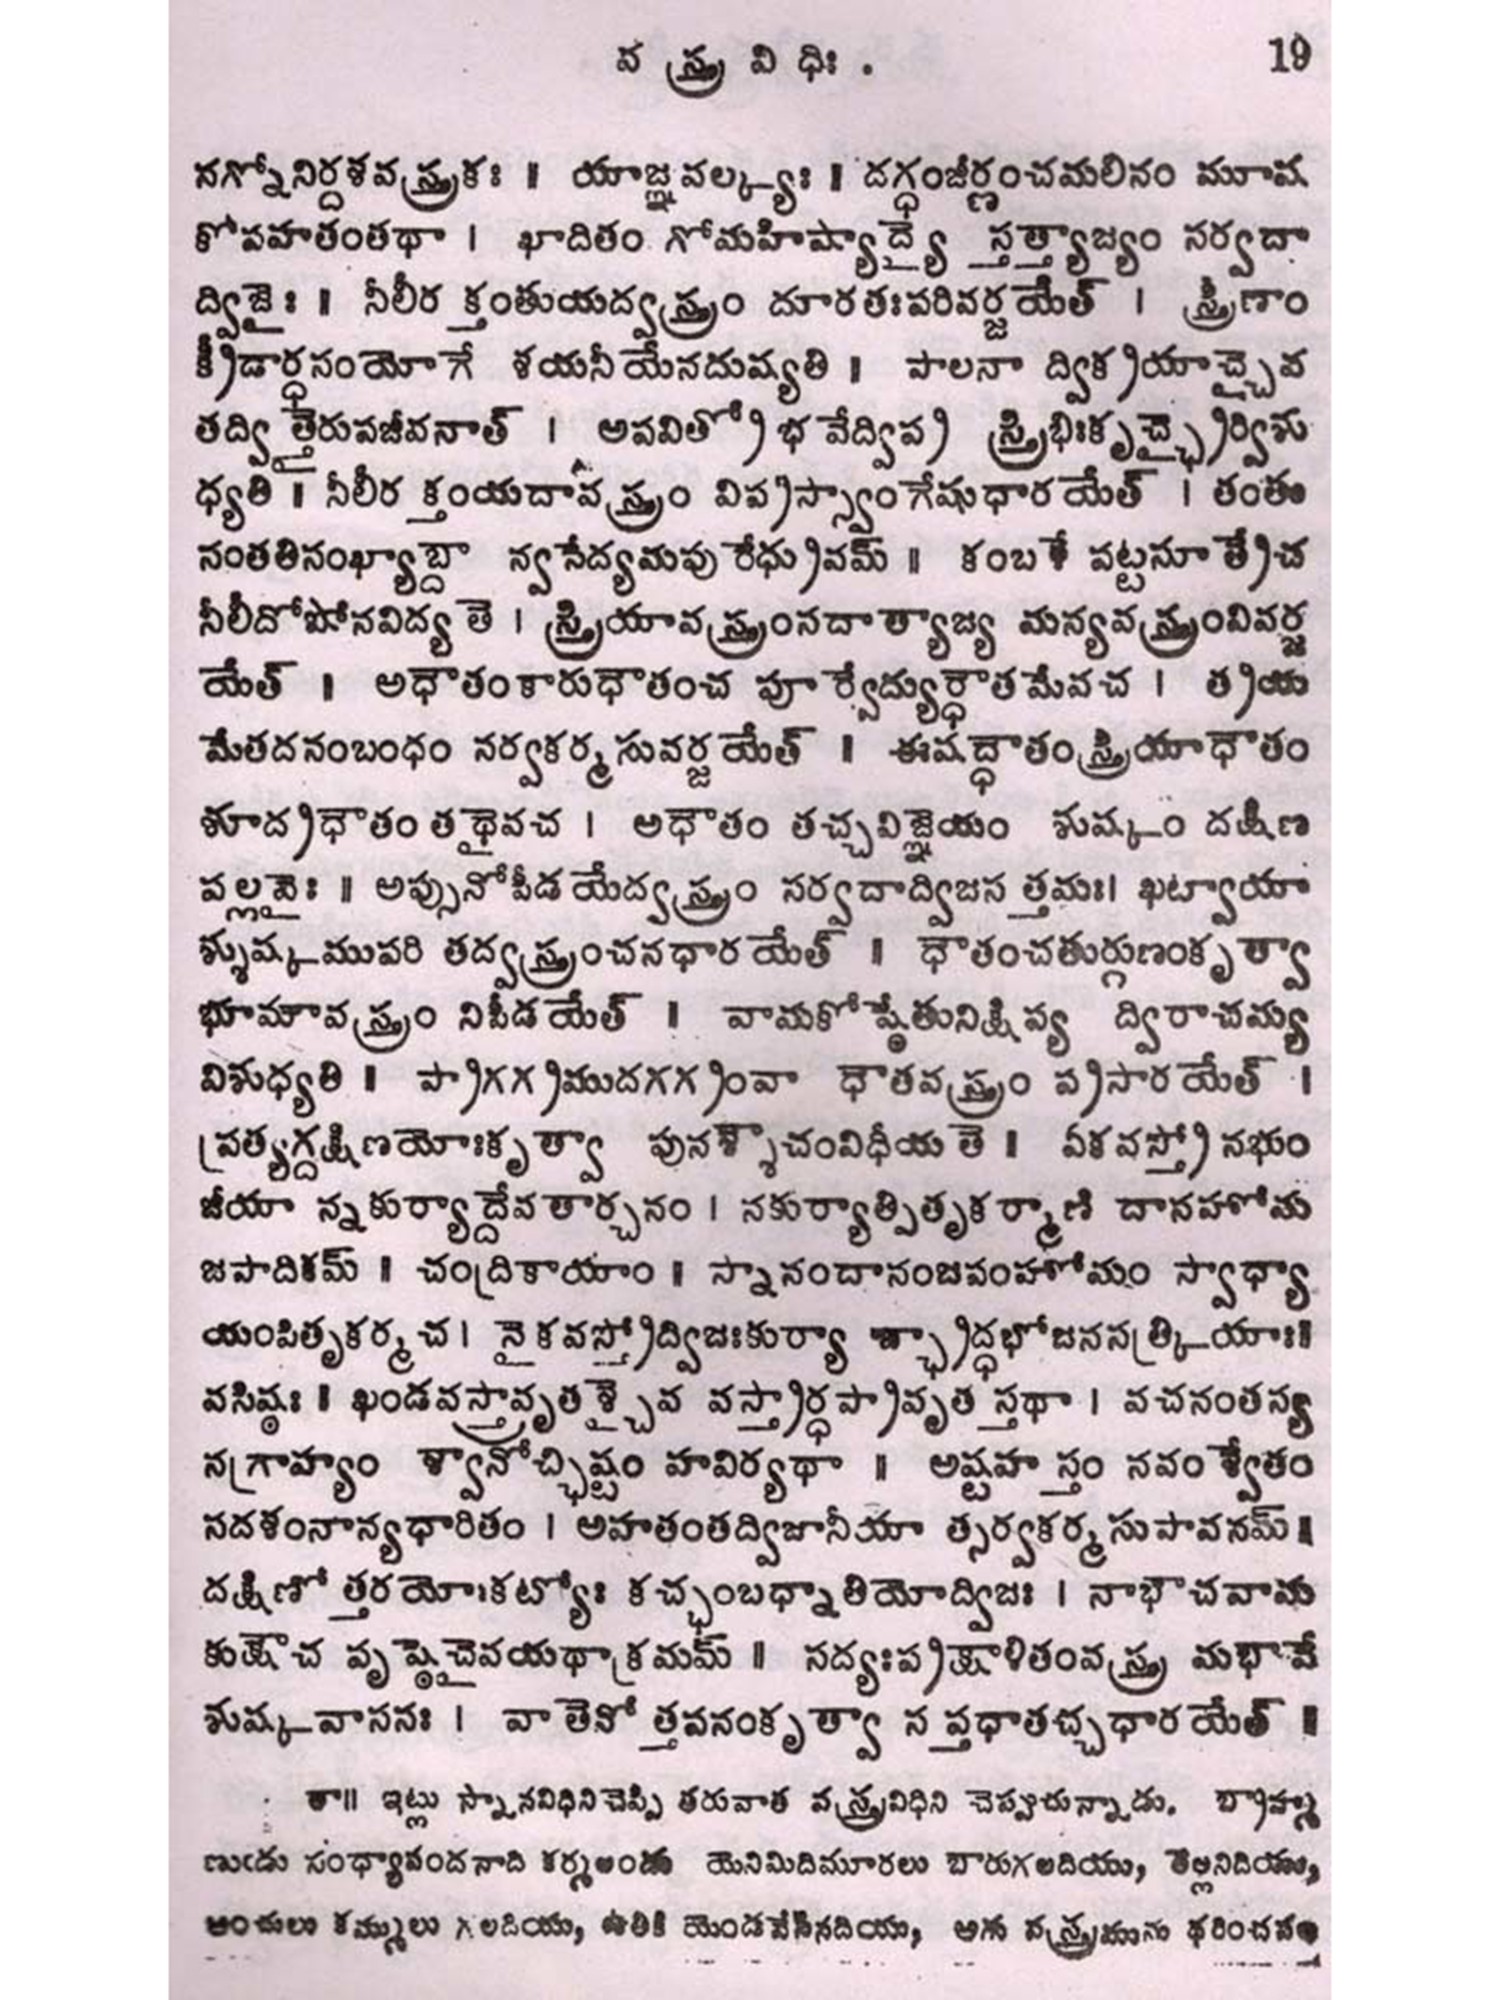 వ స్త్ర వి ధిః .
19
నగ్నోనిర్దశవస్త్రకః ॥ యాజ్ఞవల్క్యః ॥ దగ్ధంజీర్ణంచమలినం మూష
కోపహతంతథా । ఖాదితం గోమహిష్యాద్యై స్తత్త్యాజ్యం సర్వదా
ద్విజైః ॥ నీలీర క్తంతుయద్వస్త్రం దూరతఃపరివర్జయేత్ । స్త్రీణాం
క్రీడార్ధసంయోగే శయనీయేనదుష్యతి ॥ పాలనా ద్విక్రయాచ్చైవ
తద్వి త్తైరుపజీవనాత్ । అపవిత్రో భవేద్విప్ర స్త్రిభిఃకృచ్ఛ్రైర్విశు
ధ్యతి । నీలీర క్తంయదావస్త్రం విప్రస్స్వాంగేషుధారయేత్ । తంతు
సంతతిసంఖ్యాబ్దా న్వసేద్యమపురేధ్రువమ్ ॥ కంబళే పట్టసూత్రేచ
నీలీదోషోనవిద్యతె । స్త్రియావస్త్రంసదాత్యాజ్య మన్యవస్త్రంవివర్జ
యేత్ ॥ అధౌతంకారుధౌతంచ పూర్వేద్యుర్ధౌతమేవచ । త్రయ
మేతదసంబంధం సర్వకర్మసువర్జయేత్ ॥ ఈషద్ధౌతంస్త్రియాధౌతం
శూద్రధౌతం తథైవచ । అధౌతం తచ్చవిజ్ఞేయం శుష్కం దక్షిణ
పల్లవైః ॥ అప్సునోపీడయేద్వస్త్రం సర్వదాద్విజస త్తమః। ఖట్వాయా
శ్శుష్కముపరి తద్వస్త్రంచనధారయేత్ ॥ ధౌతంచతుర్గుణంకృత్వా
భూమావస్త్రం నిపీడయేత్ ॥ వామకోష్ఠేతునిక్షిప్య ద్విరాచమ్య
విశుధ్యతి ॥ ప్రాగగ్రముదగగ్రంవా ధౌతవస్త్రం ప్రసారయేత్ ।
ప్రత్యగ్దక్షిణయోఃకృత్వా పునశ్శౌచంవిధీయతె ॥ ఏకవస్త్రో నభుం
జీయా న్నకుర్యాద్దేవతార్చనం । నకుర్యాత్పితృకర్మాణి దానహోమ
జపాదికమ్ ॥ చంద్రికాయాం ॥ స్నానందానంజపంహోమం స్వాధ్యా
యంపితృకర్మచ। నైకవస్త్రోద్విజఃకుర్యా చ్ఛ్రాద్ధభోజనసత్క్రియాః॥
వసిష్ఠః ॥ ఖండవస్త్రావృతశ్చైవ వస్త్రార్ధప్రావృత స్తథా । వచనంతస్య
నగ్రాహ్యం శ్వానోచ్ఛిష్టం హవిర్యథా ॥ అష్టహస్తం నవం శ్వేతం
సదశంనాన్యధారితం । అహతంతద్విజానీయా త్సర్వకర్మసుపావనమ్ ॥
దక్షిణో త్తరయోఃకట్యోః కచ్ఛంబధ్నాతియోద్విజః । నాభౌచవామ
కుక్షౌచ పృష్ఠెచైవయథాక్రమమ్ ॥ సద్యఃప్రక్షాళితంవస్త్ర మభావే
శుష్కవాససః । వాతెనో త్తపనంకృత్వా సప్తధాతచ్చధారయేత్ ॥
తా॥ ఇట్లు స్నానవిధినిచెప్పి తరువాత వస్త్రవిధిని చెప్పుచున్నాడు. బ్రాహ్మ
ణుఁడు సంధ్యావందనాది కర్మలందు యెనిమిదిమూరలు బారుగలదియు, తెల్లనిదియు,
అంచులు కమ్ములు గలదియు, ఉతికి యెండవేసినదియు, అగు వస్త్రమును ధరించవల